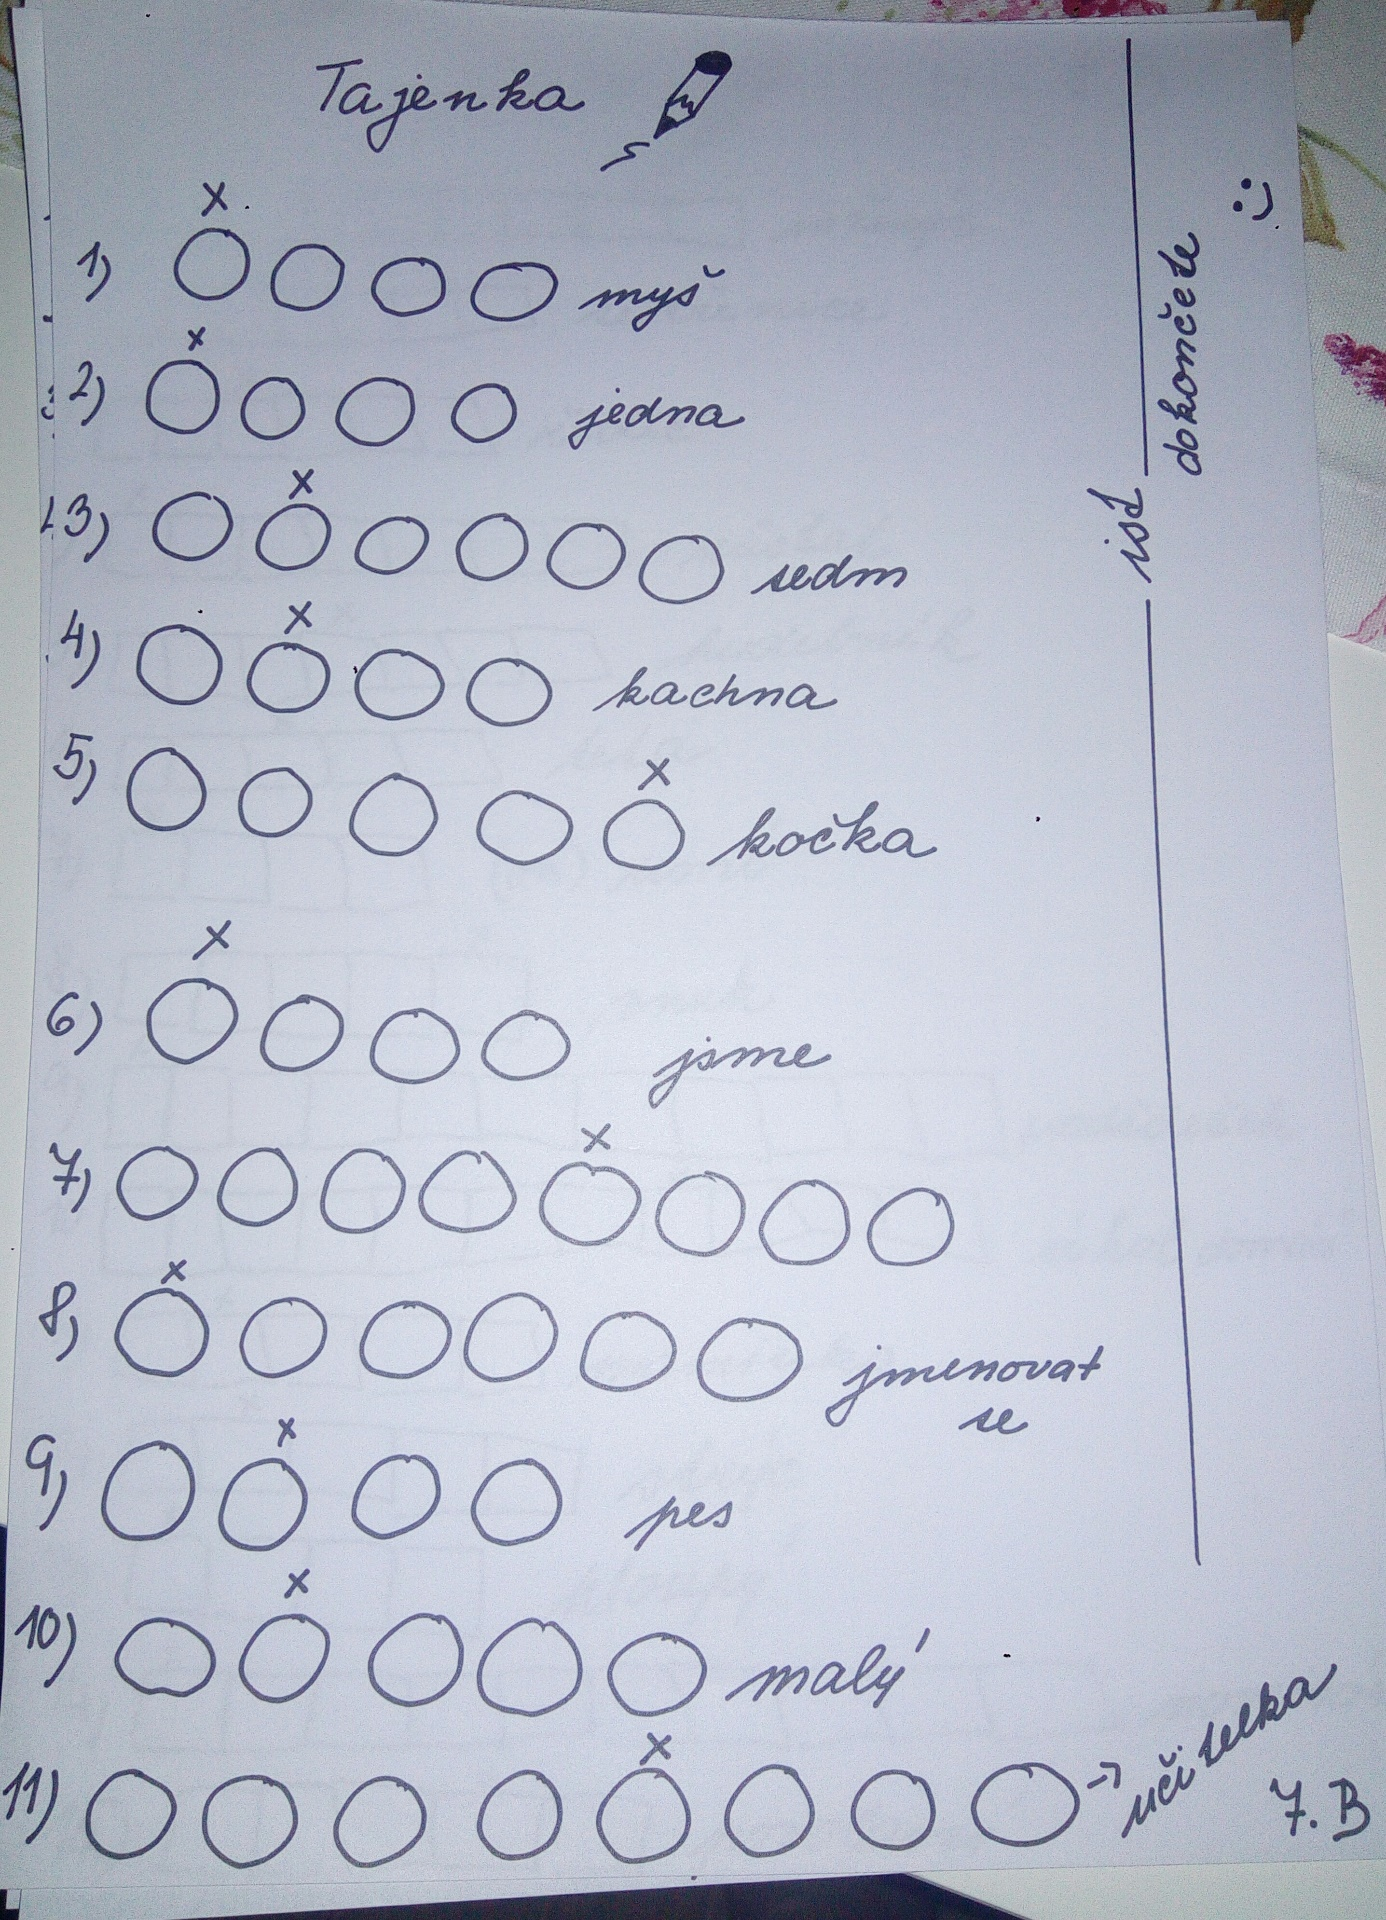 Tajenka
x
1) myš
x
2) jedna
x
3) sedm
x
4) kachna
x
5) kočka
x
6) jsme
x
7)
x
8) jmenovat
se
x
9) pes
x
10) malý
x
11) → učitelka
7. B
ist
dokončete
:)